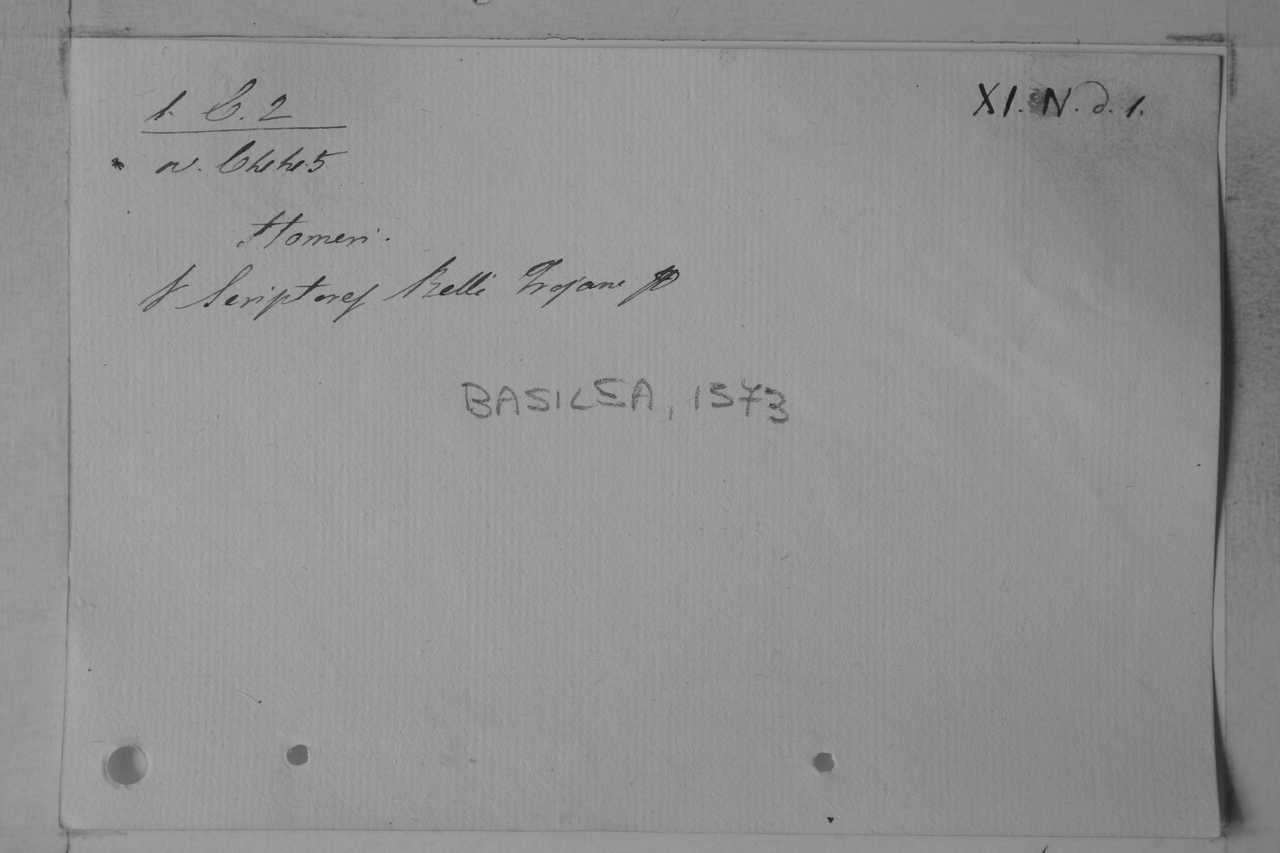 1. C. 2
XI. N. d. 1.
Homeri.
Scriptores Belli Trojani
BASILEA, 1573